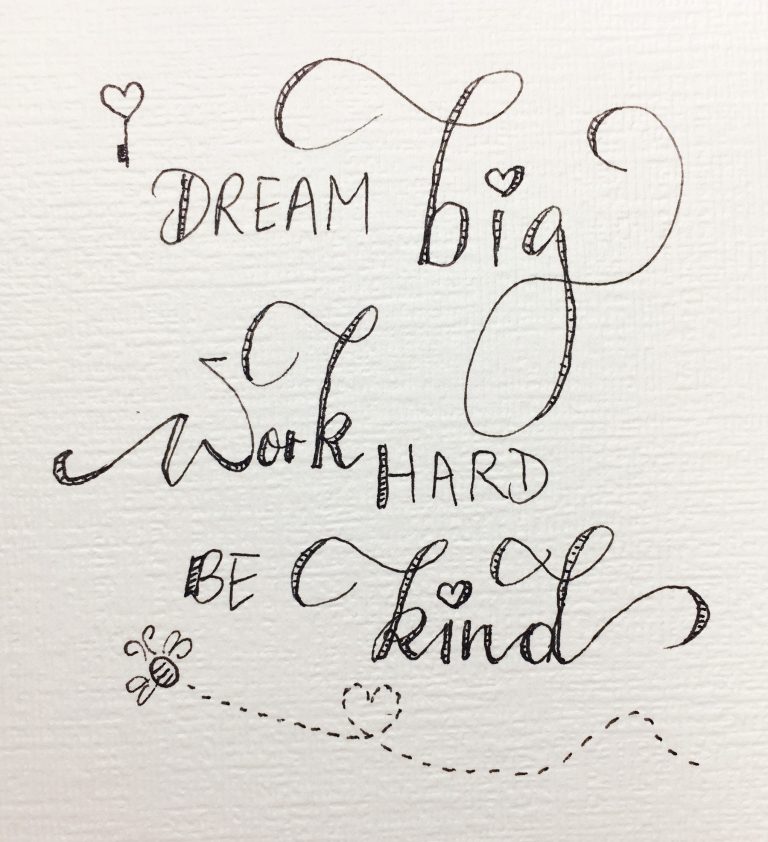 DREAM big
Work HARD
BE kind